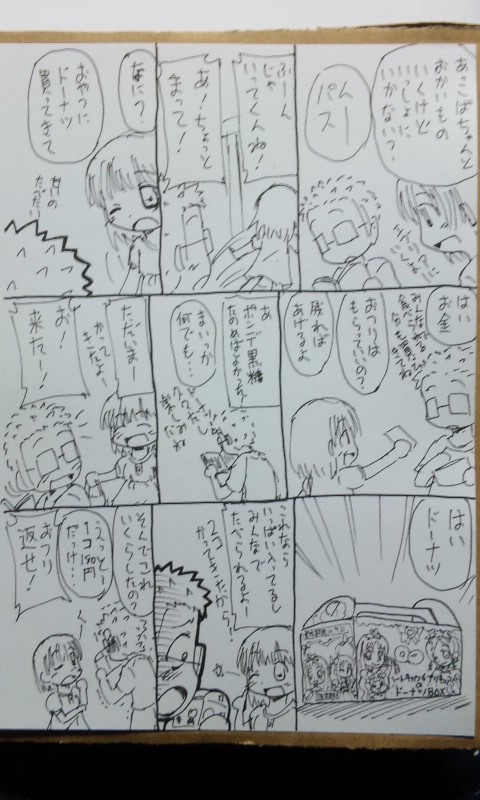 あっこばちゃんと
おかいもの
いくけど
いっしょに
いかない?
ムー
パス
ふーん
じゃ
いってくんね!
あ!ちょっと
まって!
なに?
おやつに
ドーナツ
買ってきて
はい
お金
おつりは
もらっていいの?
残れば
あげるよ
あ
ポンデ黒糖
たのめばよかった…
まいっか
何でも…
ただいまー
かって
きたよー
お!
来たー!
はい
ドーナツ
ドーナツBOX
これなら
いっぱい入ってるし
みんなで
たべられるよー
2コ
かってきたから!
そんでこれ
いくらしたの?
えっとー
1コ180円
だっけ…
おつり
返せ!